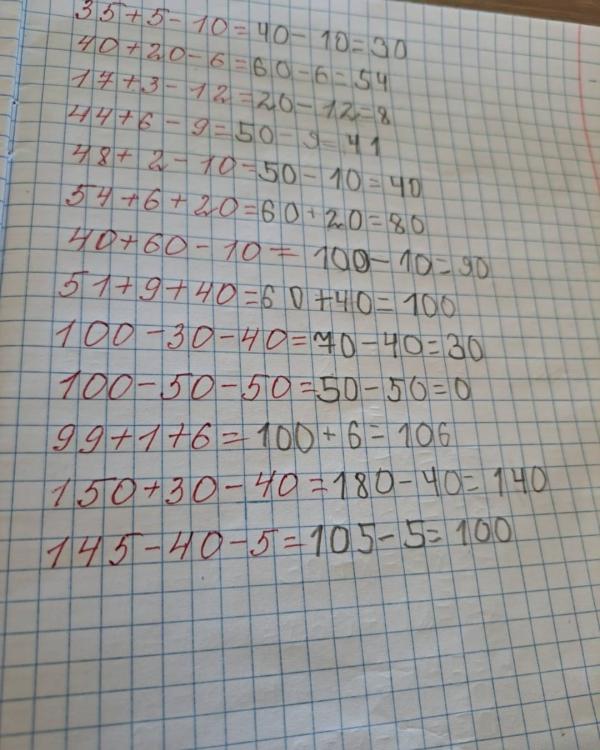 35+5-10=40-10=30
40+20-6=60-6=54
17+3-12=20-12=8
44+6-9=50-9=41
48+2-10=50-10=40
54+6+20=60+20=80
40+60-10=100-10=90
51+9+40=60+40=100
100-30-40=70-40=30
100-50-50=50-50=0
99+1+6=100+6=106
150+30-40=180-40=140
145-40-5=105-5=100